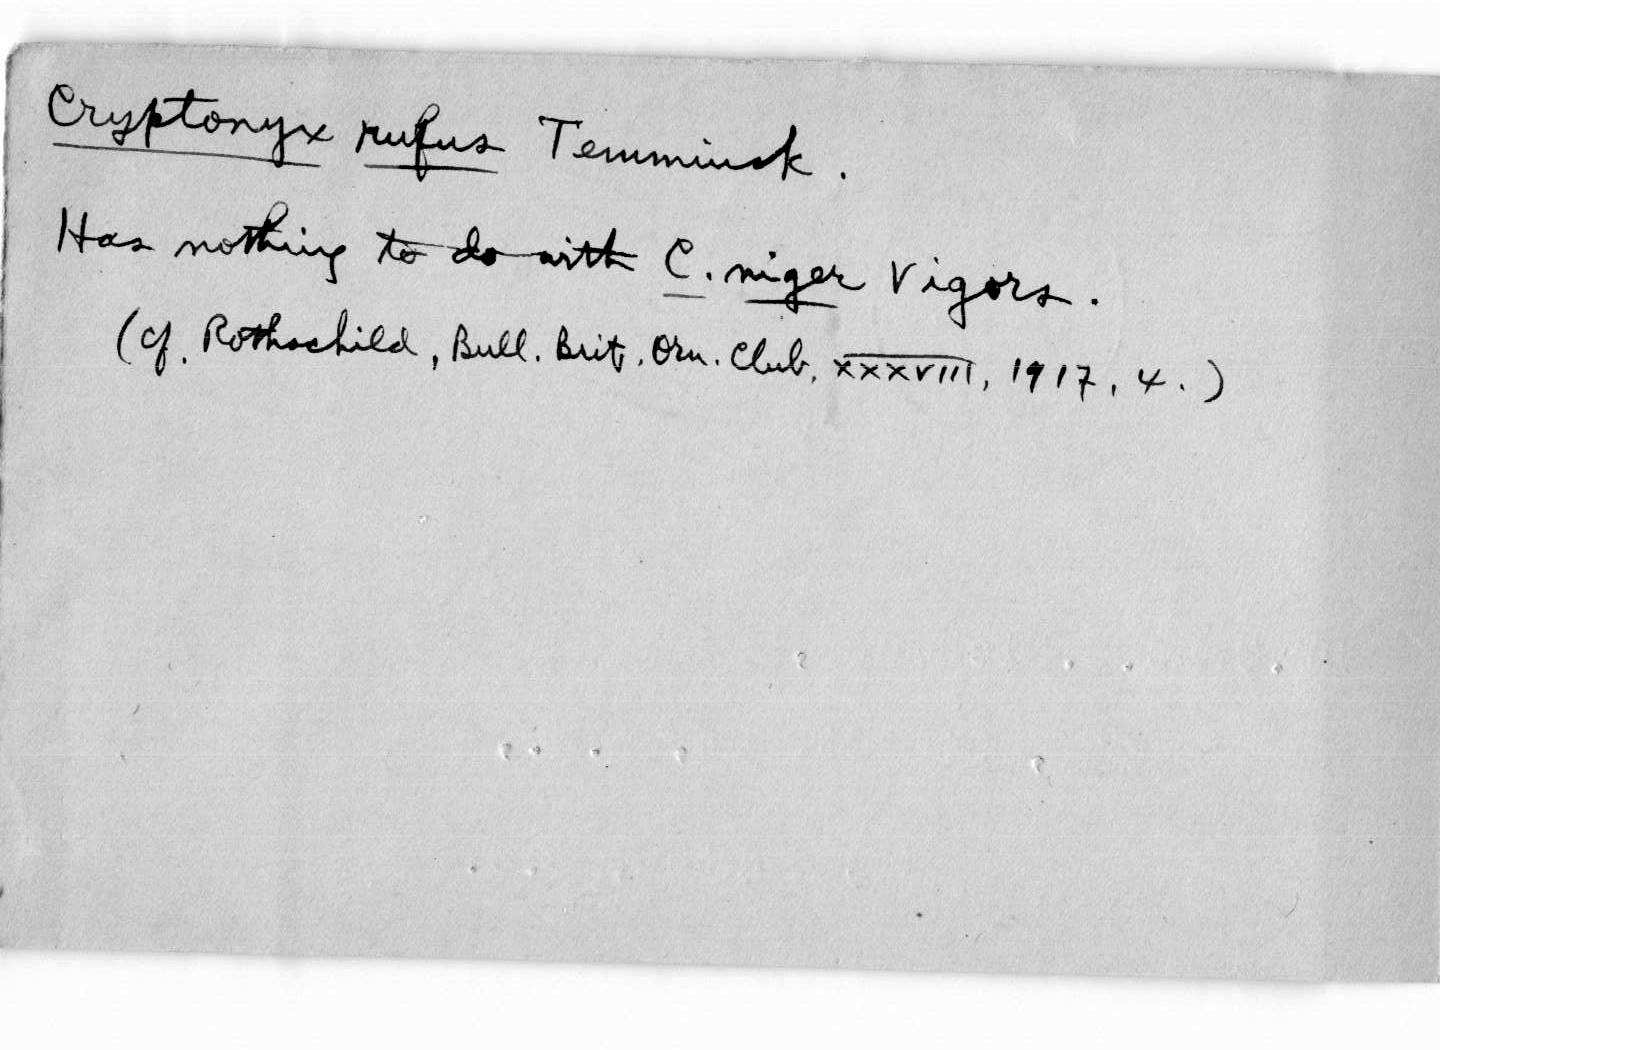 Cryptonyx rufus Temminck.
Has nothing to do with C. niger Vigors.
(cf. Rothschild, Bull. Brit. Orn. Club, XXXVIII, 1917, 4.)